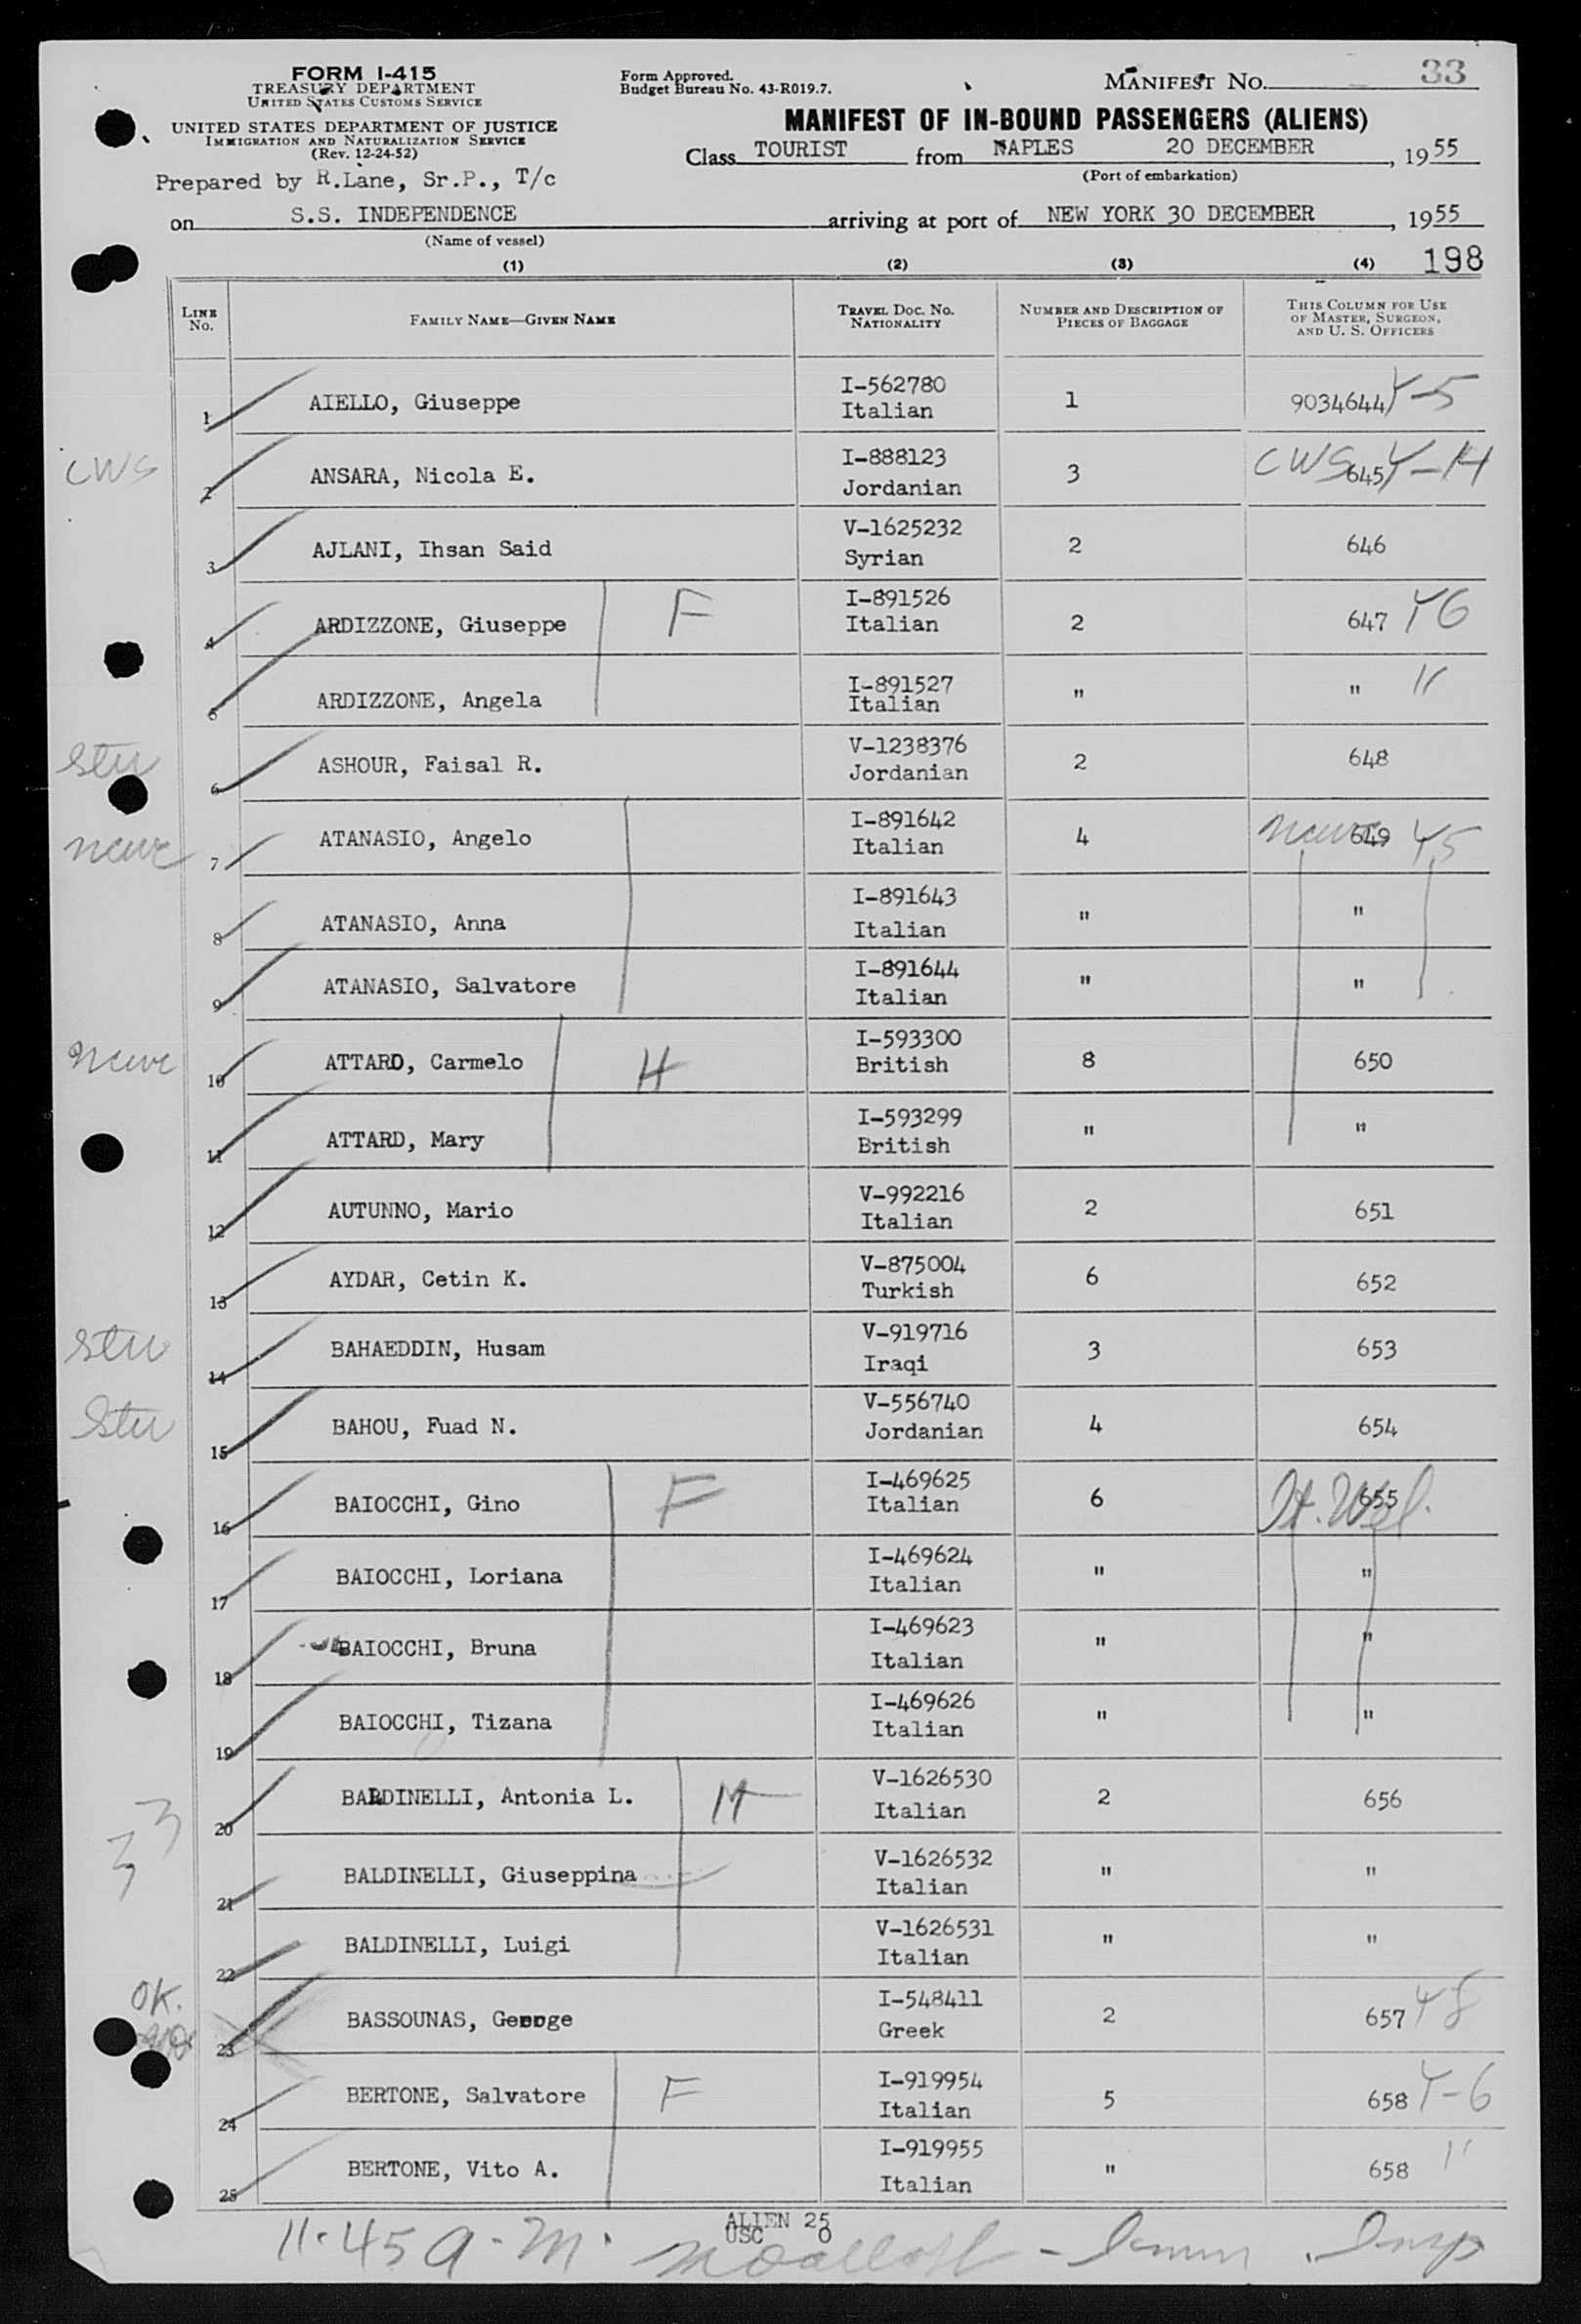 FORM I-415
TREASURY DEPARTMENT
UNITED STATES CUSTOMS SERVICE
UNITED STATES DEPARTMENT OF JUSTICE
IMMIGRATION AND NATURALIZATION SERVICE
(Rev. 12-24-52)
Prepared by R.Lane, Sr.P., T/c
Form Approved.
Budget Bureau No. 43-R019.7.
MANIFEST NO. 33
MANIFEST OF IN-BOUND PASSENGERS (ALIENS)
Class TOURIST from NAPLES 20 DECEMBER, 1955
(Port of embarkation)
on S.S. INDEPENDENCE arriving at port of NEW YORK 30 DECEMBER, 1955
(Name of vessel)
(1) (2) (3) (4) 198
LINE No. FAMILY NAME—GIVEN NAME TRAVEL DOC. NO. NATIONALITY NUMBER AND DESCRIPTION OF PIECES OF BAGGAGE THIS COLUMN FOR USE OF MASTER, SURGEON, AND U. S. OFFICERS
1 AIELLO, Giuseppe I-562780 Italian 1 9034644 Y-5
CWS 2 ANSARA, Nicola E. I-888123 Jordanian 3 CWS 645 Y-14
3 AJLANI, Ihsan Said V-1625232 Syrian 2 646
4 ARDIZZONE, Giuseppe F I-891526 Italian 2 647 Y6
5 ARDIZZONE, Angela I-891527 Italian " " "
Stu 6 ASHOUR, Faisal R. V-1238376 Jordanian 2 648
7 ATANASIO, Angelo I-891642 Italian 4 649 Y5
8 ATANASIO, Anna I-891643 Italian " "
9 ATANASIO, Salvatore I-891644 Italian " "
10 ATTARD, Carmelo H I-593300 British 8 650
11 ATTARD, Mary I-593299 British " "
12 AUTUNNO, Mario V-992216 Italian 2 651
13 AYDAR, Cetin K. V-875004 Turkish 6 652
Stu 14 BAHAEDDIN, Husam V-919716 Iraqi 3 653
Stu 15 BAHOU, Fuad N. V-556740 Jordanian 4 654
16 BAIOCCHI, Gino F I-469625 Italian 6 655
17 BAIOCCHI, Loriana I-469624 Italian " "
18 BAIOCCHI, Bruna I-469623 Italian " "
19 BAIOCCHI, Tizana I-469626 Italian " "
33 20 BALDINELLI, Antonia L. M V-1626530 Italian 2 656
21 BALDINELLI, Giuseppina V-1626532 Italian " "
22 BALDINELLI, Luigi V-1626531 Italian " "
OK. 23 BASSOUNAS, George I-548411 Greek 2 657 Y8
24 BERTONE, Salvatore F I-919954 Italian 5 658 Y-6
25 BERTONE, Vito A. I-919955 Italian " 658 "
ALIEN 25
USC 0
11.45 a.m. Imm. Insp